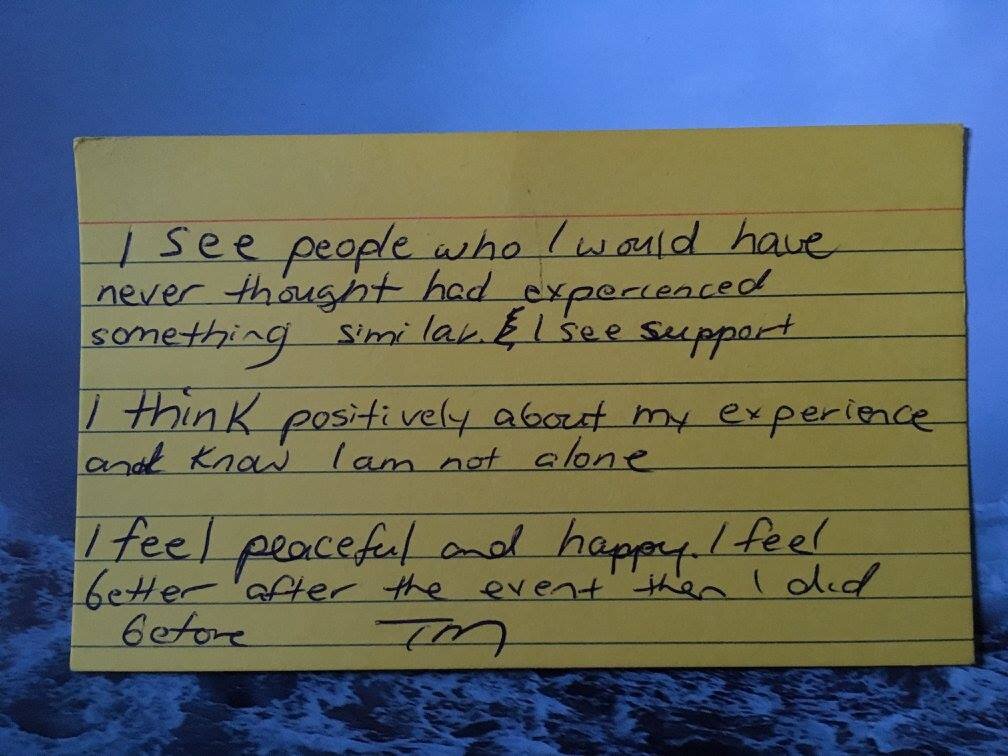 I see people who I would have
never thought had experienced
something similar. & I see support
I think positively about my experience
and know I am not alone
I feel peaceful and happy. I feel
better after the event then I did
before TM